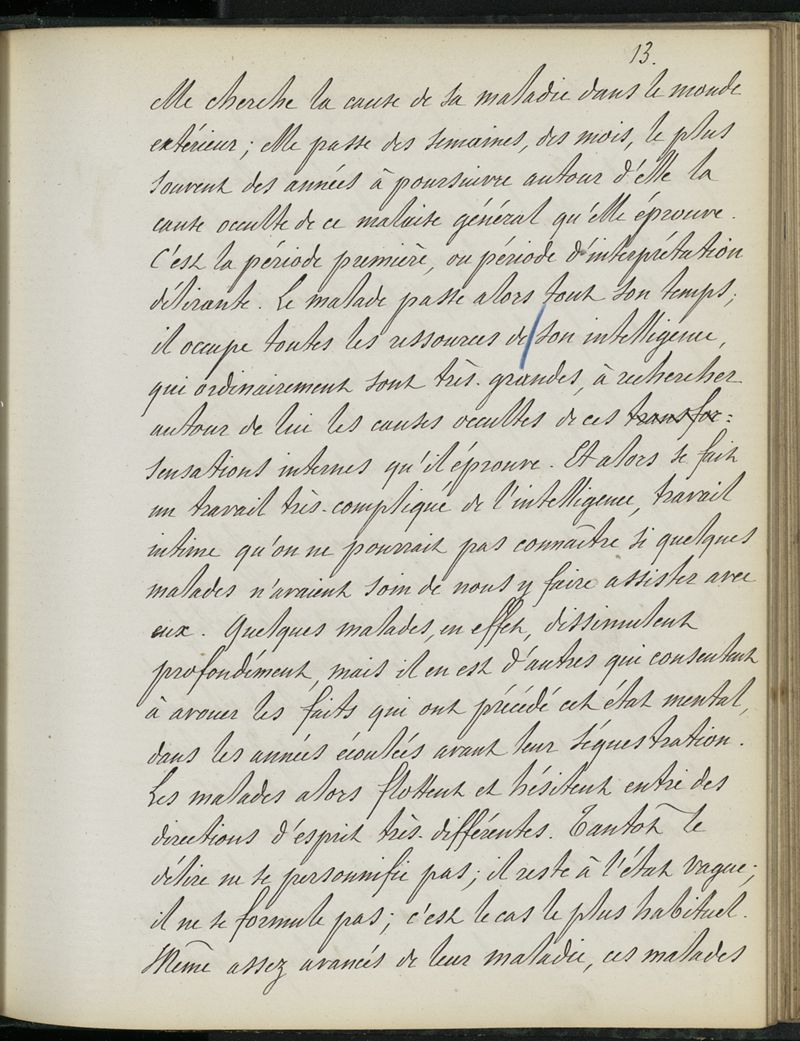 13.
elle cherche la cause de sa maladie dans le monde
extérieur ; elle passe des semaines, des mois, le plus
souvent des années à poursuivre autour d'elle la
cause occulte de ce malaise général qu'elle éprouve.
C'est la période première, ou période d'interprétation
délirante. Le malade passe alors tout son temps ;
il occupe toutes les ressources de son intelligence,
qui ordinairement sont très-grandes, à rechercher
autour de lui les causes occultes de ces transfor=
sensations internes qu'il éprouve. Et alors se fait
un travail très-compliqué de l'intelligence, travail
intime qu'on ne pourrait pas connaître si quelques
malades n'avaient soin de nous y faire assister avec
eux. Quelques malades, en effet, dissimulent
profondément, mais il en est d'autres qui consentent
à avouer les faits qui ont précédé cet état mental,
dans les années écoulées avant leur séquestration.
Les malades alors flottent et hésitent entre des
directions d'esprit très-différentes. Tantôt le
délire ne se personnifie pas ; il reste à l'état vague ;
il ne se formule pas ; c'est le cas le plus habituel.
Même assez avancés de leur maladie, ces malades